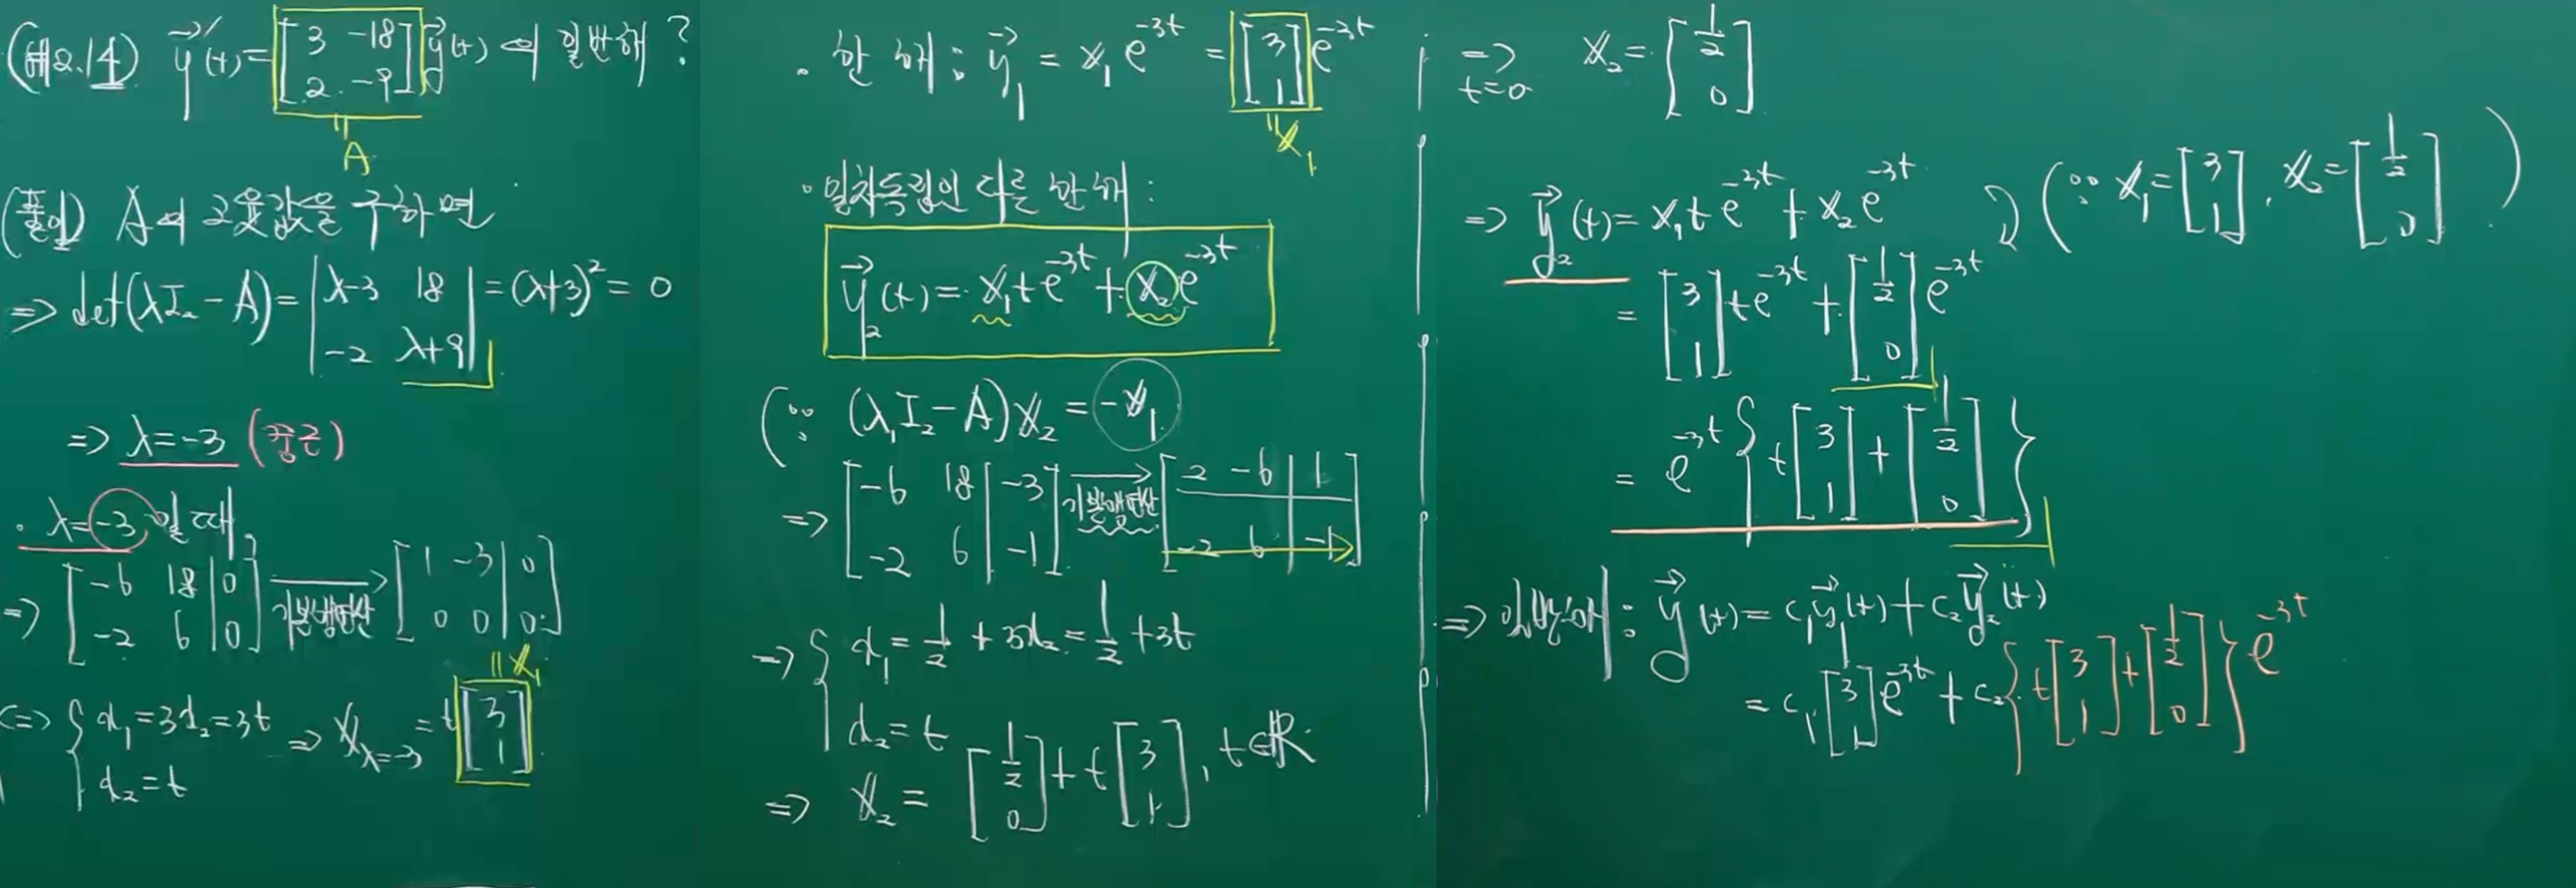 (예2.14) y⃗′(t) = [3 -18; 2 -9] y⃗(t) 의 일반해 ?
= A
(풀이) A의 고윳값을 구하면
⇒ det(λI₂ - A) = |λ-3 18; -2 λ+9| = (λ+3)² = 0
⇒ λ = -3 (중근)
· λ = -3 일 때,
⇒ [-6 18 | 0; -2 6 | 0] → 기본행연산 [1 -3 | 0; 0 0 | 0]
⇔ { x₁ = 3x₂ = 3t, x₂ = t ⇒ 𝕏_{λ=-3} = t [3; 1] = 𝕏₁
· 한 해 : y⃗₁ = 𝕏₁ e^{-3t} = [3; 1] e^{-3t}
= 𝕏₁
· 일차독립인 다른 한 해 :
y⃗₂(t) = 𝕏₁ t e^{-3t} + 𝕏₂ e^{-3t}
(∵ (λ₁I₂ - A) 𝕏₂ = -𝕏₁
⇒ [-6 18 | -3; -2 6 | -1] → 기본행연산 [2 -6 | 1; -2 6 | -1]
⇒ { x₁ = 1/2 + 3x₂ = 1/2 + 3t
x₂ = t
⇒ 𝕏₂ = [1/2; 0] + t [3; 1], t ∈ ℝ
⇒ t=0 𝕏₂ = [1/2; 0]
⇒ y⃗₂(t) = 𝕏₁ t e^{-3t} + 𝕏₂ e^{-3t} (∵ 𝕏₁ = [3; 1], 𝕏₂ = [1/2; 0])
= [3; 1] t e^{-3t} + [1/2; 0] e^{-3t}
= e^{-3t} { t [3; 1] + [1/2; 0] }
⇒ 일반해 : y⃗(t) = c₁ y⃗₁(t) + c₂ y⃗₂(t)
= c₁ [3; 1] e^{-3t} + c₂ { t [3; 1] + [1/2; 0] } e^{-3t}